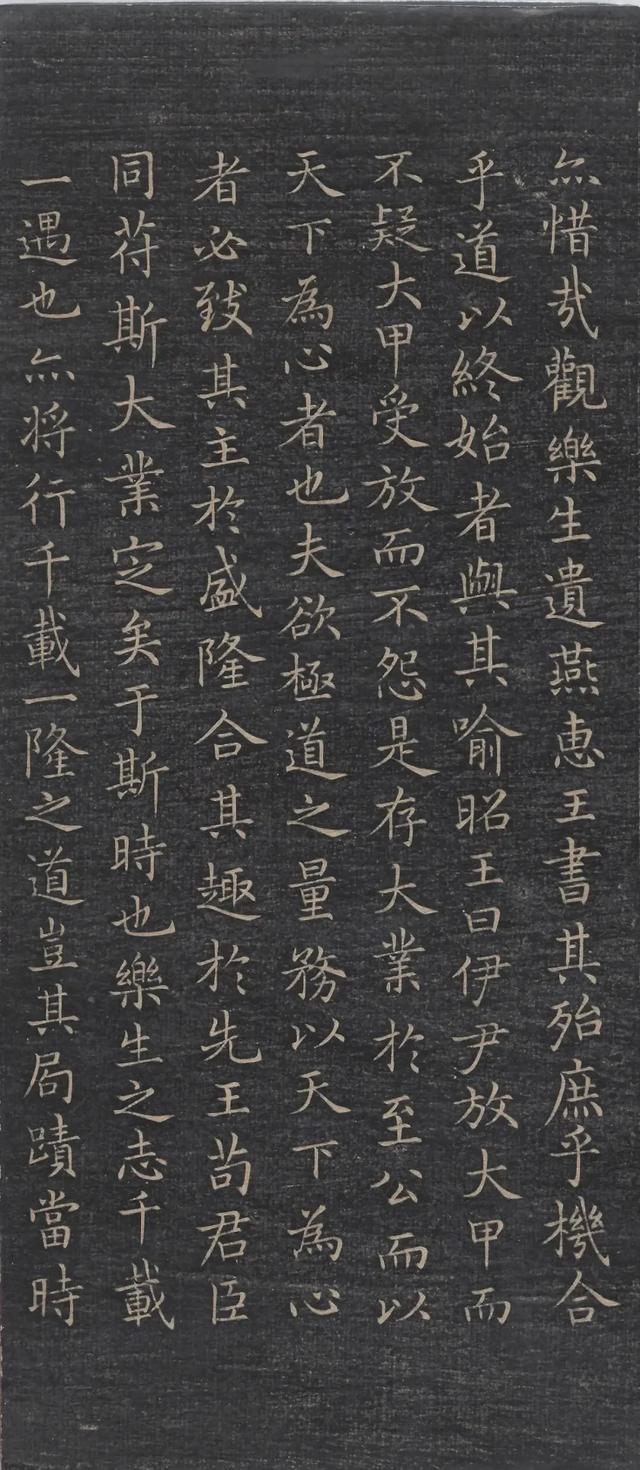 亦惜哉觀樂生遺燕惠王書其殆庶乎機合
乎道以終始者與其喻昭王曰伊尹放大甲而
不疑大甲受放而不怨是存大業於至公而以
天下為心者也夫欲極道之量務以天下為心
者必致其主於盛隆合其趣於先王苟君臣
同苻斯大業定矣于斯時也樂生之志千載
一遇也亦將行千載一隆之道豈其局蹟當時